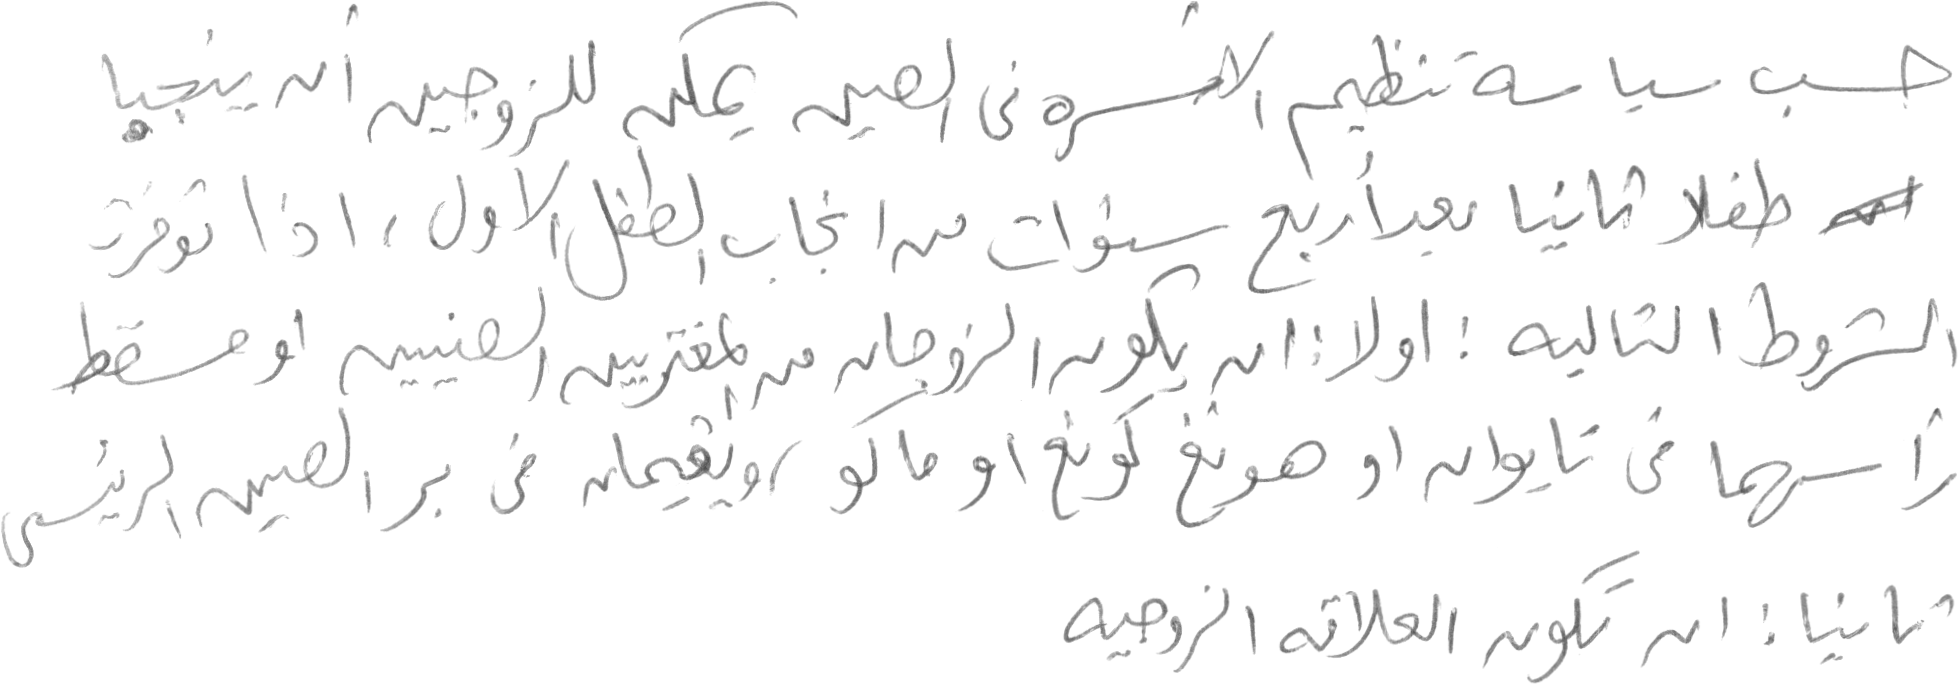 حسب سياسة تنظيم الأسره في الصين يمكن للزوجين أن ينجبا
طفلا ثانيا بعد أربع سنوات من انجاب الطفل الاول ، اذا توفرت
الشروط التاليه : اولا : ان يكون الزوجان من المغتربين الصينيين او مسقط
رأسهما في تايوان او هونغ كونغ او ماكو ، ويقيمان في بر الصين الرئيسي
ثانيا : ان تكون العلاقه الزوجيه